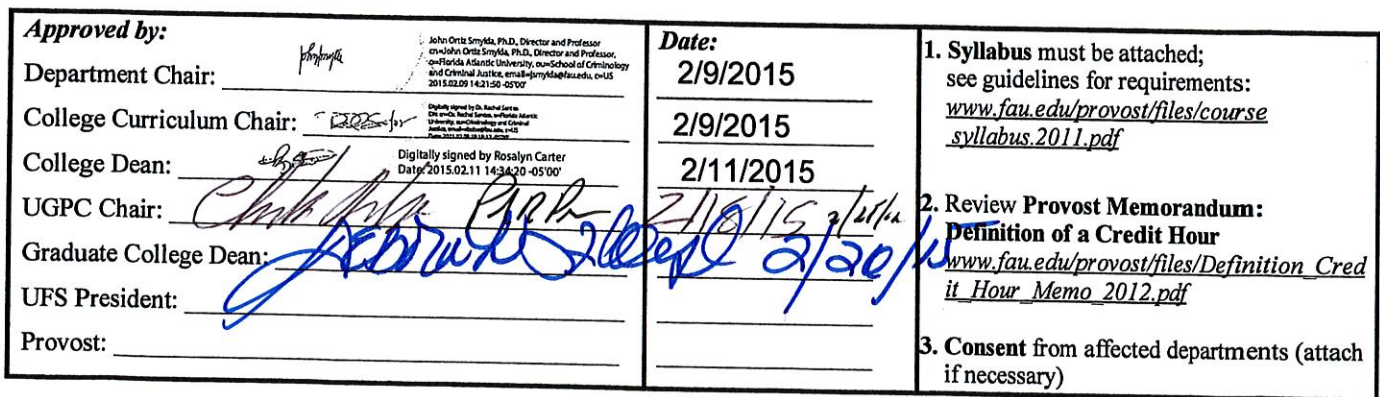 Approved by:
Department Chair:
John Ortiz Smykla, Ph.D., Director and Professor
cn=John Ortiz Smykla, Ph.D., Director and Professor,
o=Florida Atlantic University, ou=School of Criminology
and Criminal Justice, email=jsmykla@fau.edu, c=US
2015.02.09 14:21:50 -05'00'
College Curriculum Chair: for
Digitally signed by Dr. Rachel Santos
College Dean:
Digitally signed by Rosalyn Carter
Date: 2015.02.11 14:34:20 -05'00'
UGPC Chair:
Graduate College Dean: Deborah
UFS President:
Provost:
Date:
2/9/2015
2/9/2015
2/11/2015
2/18/15
2/20/15
1. Syllabus must be attached;
see guidelines for requirements:
www.fau.edu/provost/files/course
syllabus.2011.pdf
2. Review Provost Memorandum:
Definition of a Credit Hour
www.fau.edu/provost/files/Definition_Cred
it_Hour_Memo_2012.pdf
3. Consent from affected departments (attach
if necessary)